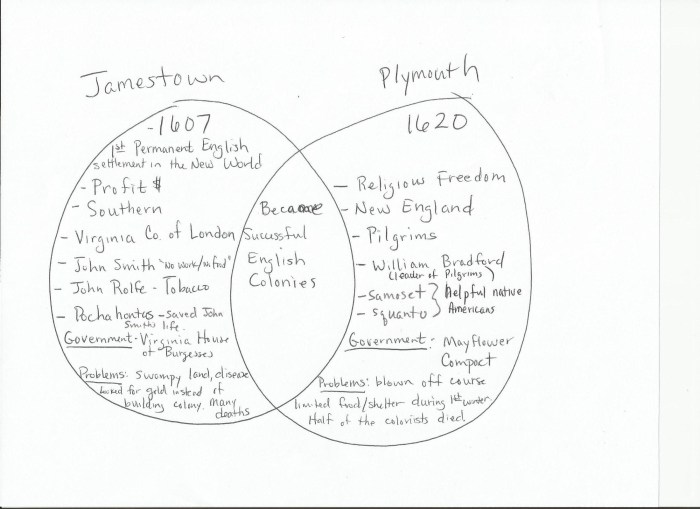 Jamestown
-1607
1st Permanent English
settlement in the New World
- Profit $
- Southern
- Virginia Co. of London
- John Smith "No work/No food"
- John Rolfe - Tobacco
- Pochahontas - saved John
Smith's life.
Government - Virginia House
of Burgesses
Problems: Swampy land, disease
looked for gold instead of
building colony. many
deaths
Became
Successful
English
Colonies
Plymouth
1620
- Religious Freedom
- New England
- Pilgrims
- William Bradford
(leader of Pilgrims)
- Samoset } helpful native
- Squanto } Americans
Government: Mayflower
Compact
Problems: blown off course
limited food/shelter during 1st winter
Half of the colonists died.